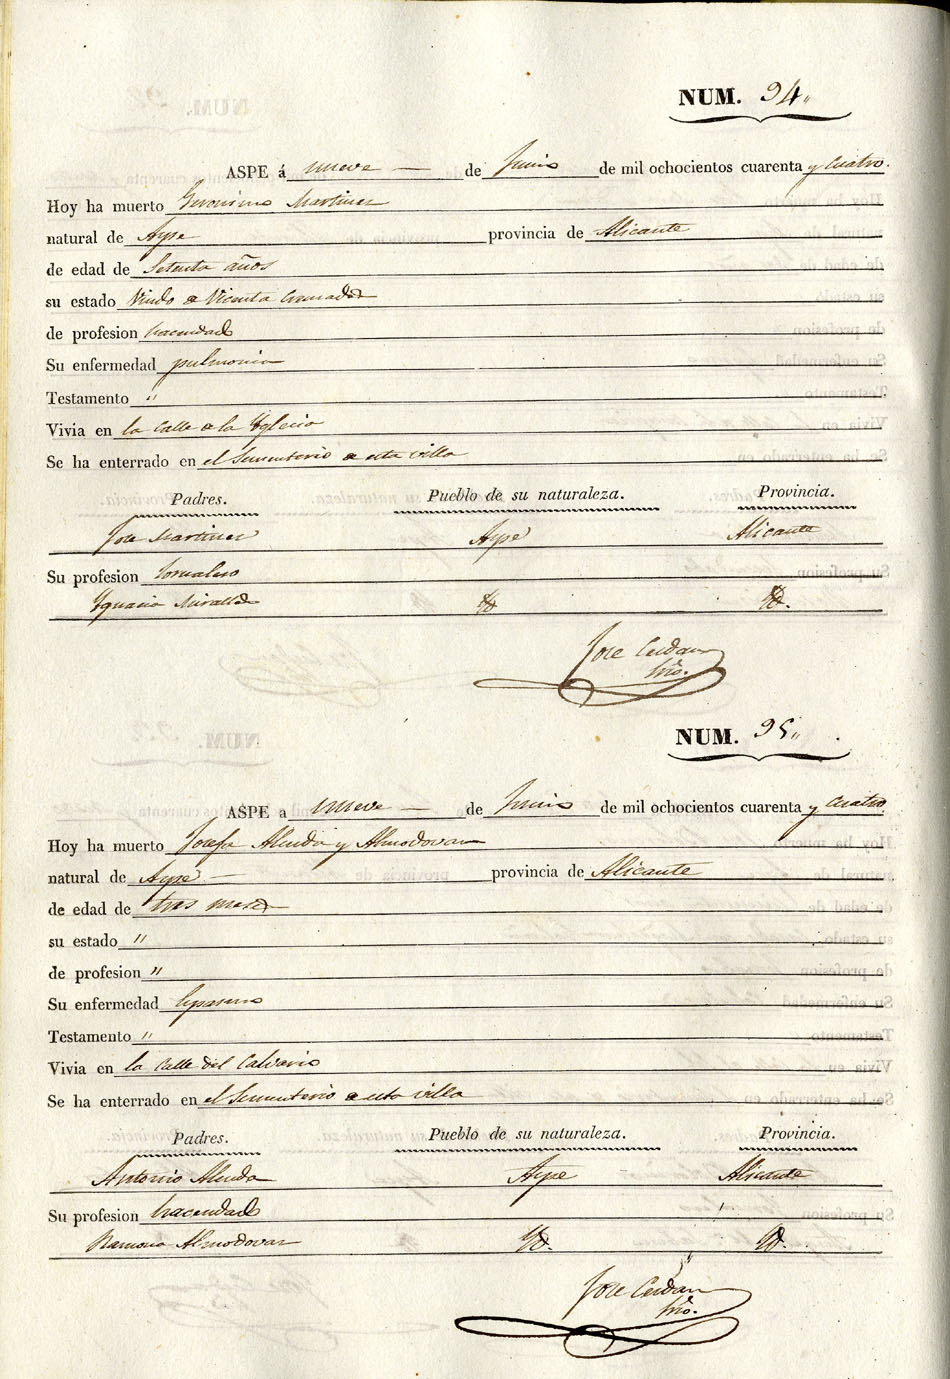 NUM. 94.
ASPE á nueve de Junio de mil ochocientos cuarenta y cuatro.
Hoy ha muerto Geronimo Martinez
natural de Aspe provincia de Alicante
de edad de Setenta años
su estado Viudo de Vicenta
de profesion hacendado
Su enfermedad pulmonia
Testamento "
Vivia en la Calle de la Yglecia
Se ha enterrado en el Sementerio de esta villa
Padres. Pueblo de su naturaleza. Provincia.
Jose Martinez Aspe Alicante
Su profesion Jornalero
Ygnacia Miralles Yd. Yd.
Jose Cerdan
Srio.
NUM. 95.
ASPE a nueve de Junio de mil ochocientos cuarenta y cuatro
Hoy ha muerto Josefa Alenda y Almodovar
natural de Aspe provincia de Alicante
de edad de tres meses
su estado "
de profesion "
Su enfermedad
Testamento "
Vivia en la Calle del Calvario
Se ha enterrado en el Sementerio de esta villa
Padres. Pueblo de su naturaleza. Provincia.
Antonio Alenda Aspe Alicante
Su profesion hacendado
Ramona Almodovar Yd. Yd.
Jose Cerdan
Srio.